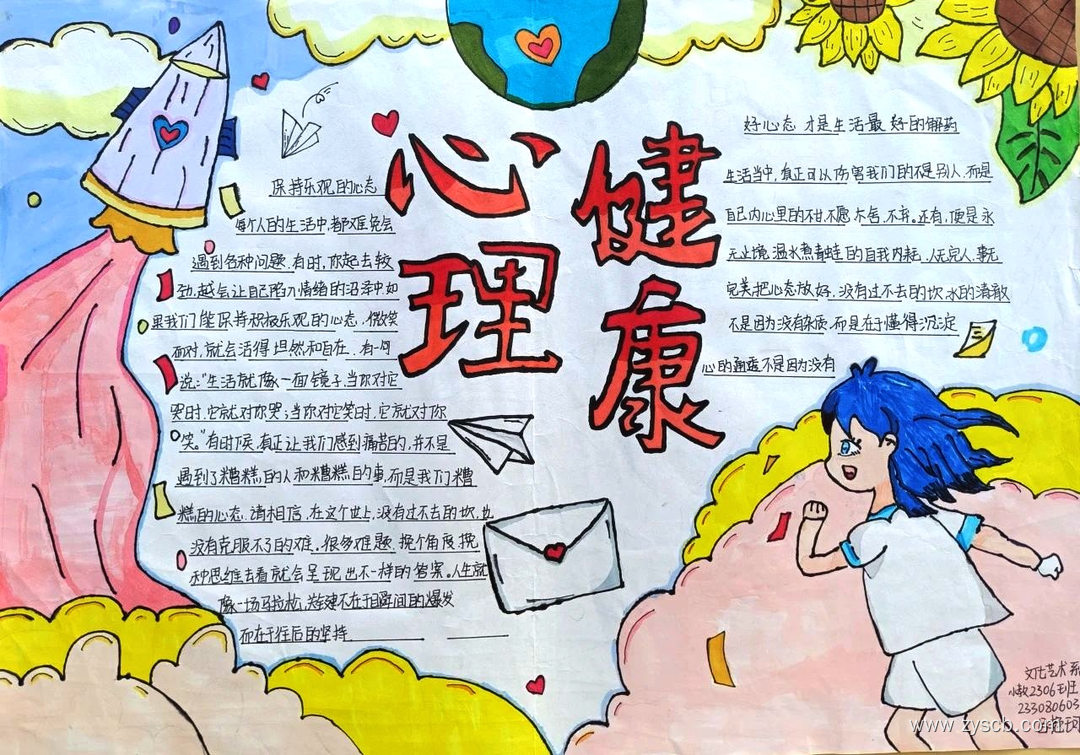 心理
健康
保持乐观的心态
每个人的生活中,都难免会
遇到各种问题.有时,你起去较
劲,越会让自己陷入情绪的沼泽中.如
果我们能保持积极乐观的心态,微笑
面对,就会活得坦然和自在.有一句
说:“生活就像一面镜子,当你对它
哭时,它就对你哭;当你对它笑时,它就对你
笑。”有时候,真正让我们感到痛苦的,并不是
遇到了糟糕的人和糟糕的事,而是我们糟
糕的心态.请相信,在这个世上,没有过不去的坎,也
没有克服不了的难。很多难题,换个角度,换
种思维去看就会呈现出不一样的答案。人生就
像一场马拉松,关键不在于瞬间的爆发
而在于往后的坚持.
好心态 才是生活最好的解药
生活当中,真正可以伤害我们的不是别人,而是
自己内心里的不甘,不愿,不舍,不弃。还有,便是永
无止境,温水煮青蛙的自我内耗,人无完人,事无
完美把心态放好,没有过不去的坎,水的清澈
不是因为没有杂质,而是在于懂得沉淀
心的通透不是因为没有
文化艺术系
2306班
233080603
www.zyscb.com